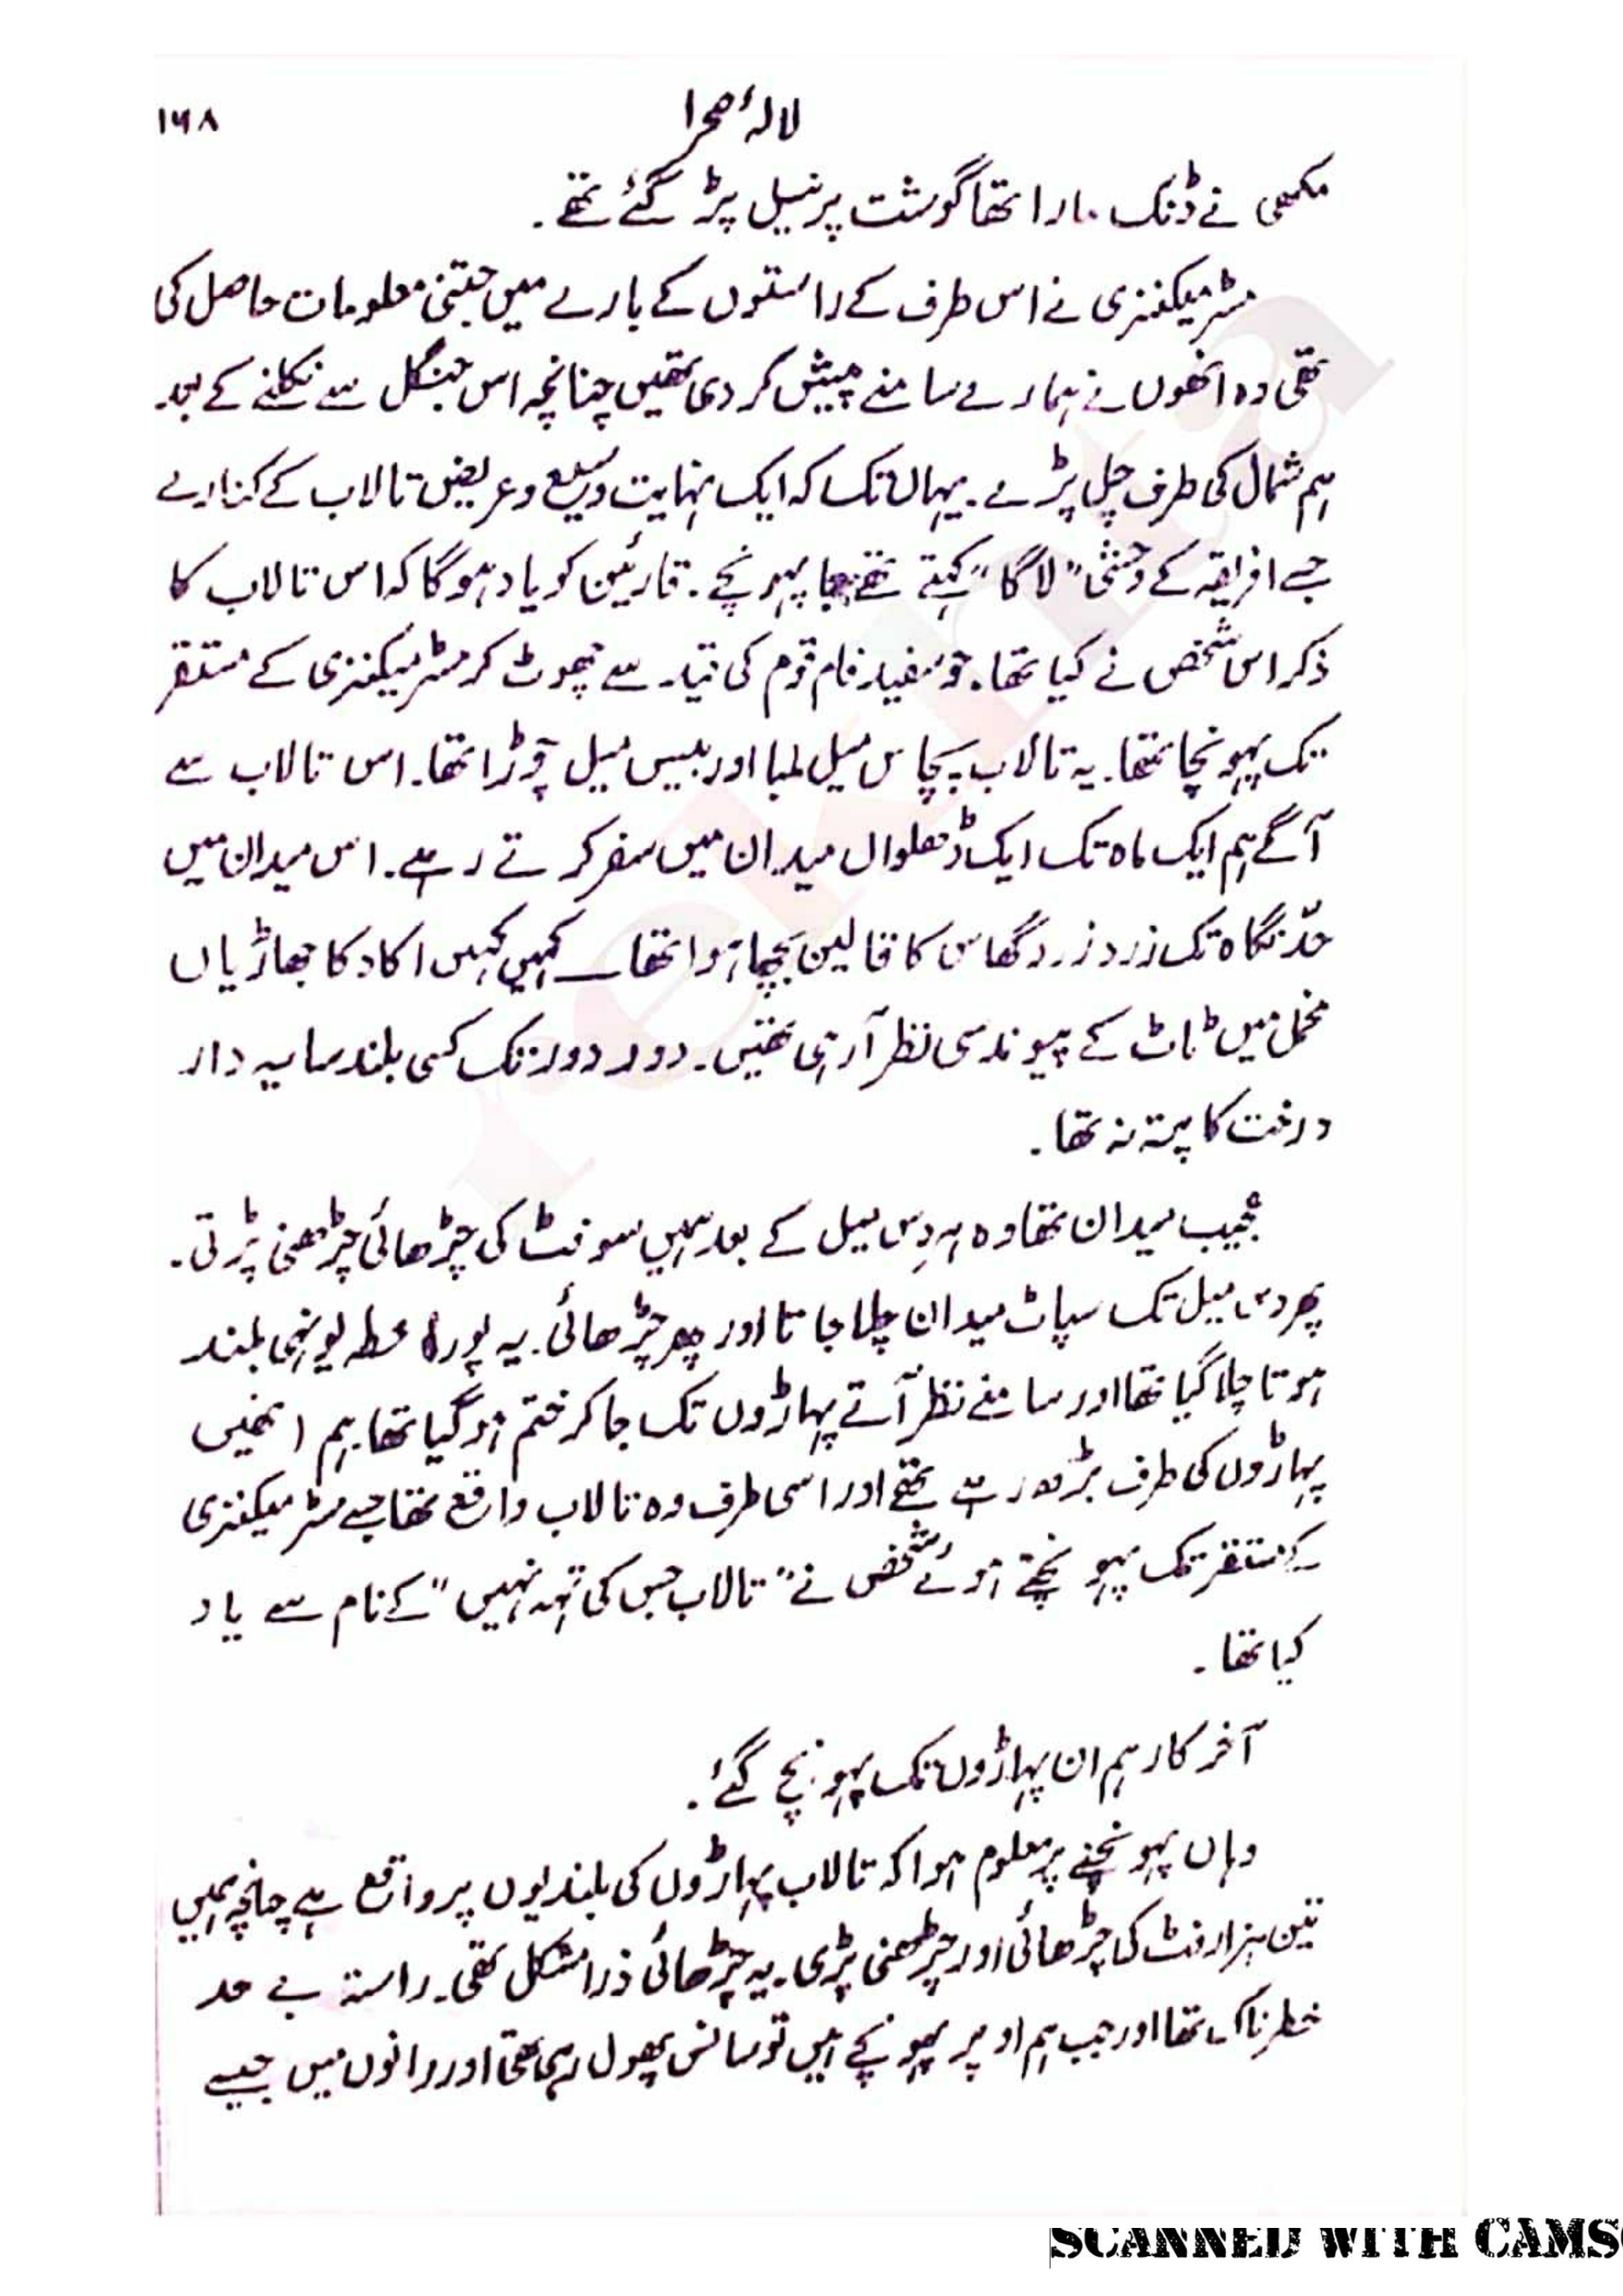 لالۂ صحرا ۱۶۸
مکھی نے ڈنک مارا تھا گوشت پر نیل پڑ گئے تھے۔
مسٹر میکنزی نے اس طرف کے راستوں کے بارے میں جتنی معلومات حاصل کی
تھی وہ انھوں نے ہمارے سامنے پیش کر دی تھیں چنانچہ اس جنگل سے نکلنے کے بعد
ہم شمال کی طرف چل پڑے۔ یہاں تک کہ ایک نہایت وسیع و عریض تالاب کے کنارے
جسے افریقہ کے وحشی "لاگا" کہتے تھے جا پہونچے۔ قارئین کو یاد ہوگا کہ اس تالاب کا
ذکر اس شخص نے کیا تھا۔ جو سفید فام قوم کی قید سے چھوٹ کر مسٹر میکنزی کے مستقر
تک پہونچا تھا۔ یہ تالاب پچاس میل لمبا اور بیس میل چوڑا تھا۔ اس تالاب سے
آگے ہم ایک ماہ تک ایک ڈھلوال میدان میں سفر کرتے رہے۔ اس میدان میں
حدّ نگاہ تک زرد زرد گھاس کا قالین بچھا ہوا تھا ــ کہیں کہیں اکا دکا جھاڑیاں
مخمل میں ٹاٹ کے پیوند سی نظر آرہی تھیں۔ دور دور تک کسی بلند سایہ دار
درخت کا پتہ نہ تھا۔
عجیب میدان تھا وہ ہر دس میل کے بعد ہمیں سو فٹ کی چڑھائی چڑھنی پڑتی۔
پھر دس میل تک سپاٹ میدان چلا جاتا اور پھر چڑھائی۔ یہ پورا خطہ یونہی بلند
ہوتا چلا گیا تھا اور سامنے نظر آتے پہاڑوں تک جا کر ختم ہو گیا تھا۔ ہم انھیں
پہاڑوں کی طرف بڑھ رہے تھے اور اسی طرف وہ تالاب واقع تھا جسے مسٹر میکنزی
کے مستقر تک پہونچتے ہوئے شخص نے "تالاب جس کی تہہ نہیں" کے نام سے یاد
کیا تھا۔
آخر کار ہم ان پہاڑوں تک پہونچ گئے۔
وہاں پہونچنے پر معلوم ہوا کہ تالاب پہاڑوں کی بلندیوں پر واقع ہے چنانچہ ہمیں
تین ہزار فٹ کی چڑھائی اور چڑھنی پڑی۔ یہ چڑھائی ذرا مشکل تھی۔ راستہ بے حد
خطرناک تھا اور جب ہم اوپر پہونچے ہیں تو سانس پھول رہی تھی اور رانوں میں جیسے
rekhta
SCANNED WITH CAMS